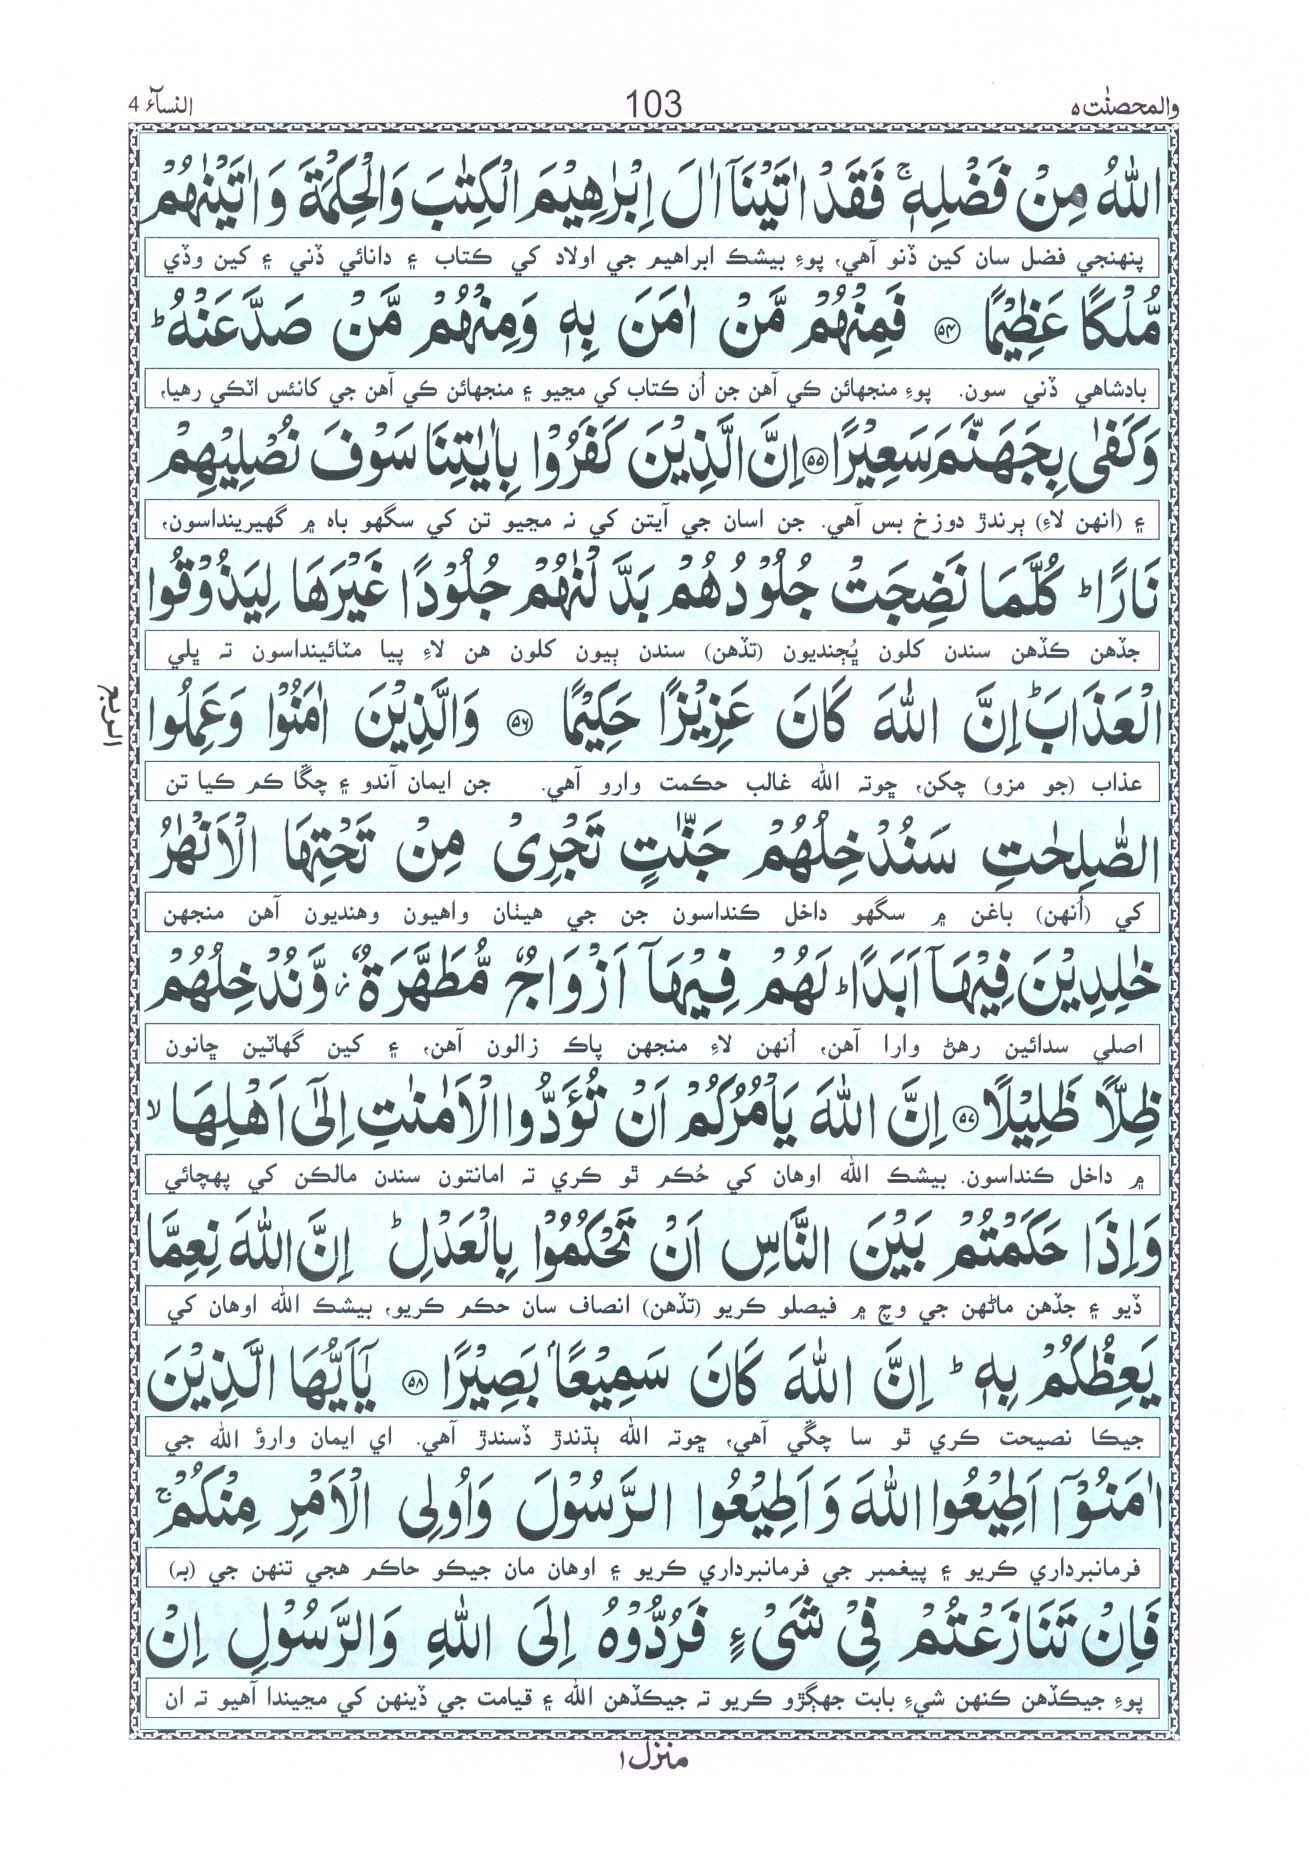 والمحصنٰت ٥ 103 النسآء 4
اللّٰهُ مِنْ فَضْلِهٖ ۚ فَقَدْ اٰتَيْنَآ اٰلَ اِبْرٰهِيْمَ الْكِتٰبَ وَالْحِكْمَةَ وَاٰتَيْنٰهُمْ
پنهنجي فضل سان کين ڏنو آهي، پوءِ بيشڪ ابراهيم جي اولاد کي ڪتاب ۽ دانائي ڏني ۽ کين وڏي
مُّلْكًا عَظِيْمًا ۝٥٤ فَمِنْهُمْ مَّنْ اٰمَنَ بِهٖ وَمِنْهُمْ مَّنْ صَدَّ عَنْهُ ؕ
بادشاهي ڏني سون. پوءِ منجهائن ڪي آهن جن اُن ڪتاب کي مڃيو ۽ منجهائن ڪي آهن جي کانئس اٽڪي رهيا،
وَكَفٰى بِجَهَنَّمَ سَعِيْرًا ۝٥٥ اِنَّ الَّذِيْنَ كَفَرُوْا بِاٰيٰتِنَا سَوْفَ نُصْلِيْهِمْ
۽ (انهن لاءِ) ٻرندڙ دوزخ بس آهي. جن اسان جي آيتن کي نہ مڃيو تن کي سگهو باه ۾ گهيرينداسون،
نَارًا ؕ كُلَّمَا نَضِجَتْ جُلُوْدُهُمْ بَدَّلْنٰهُمْ جُلُوْدًا غَيْرَهَا لِيَذُوْقُوا
جڏهن ڪڏهن سندن کلون ڀُڄنديون (تڏهن) سندن ٻيون کلون هن لاءِ پيا مٽائينداسون تہ ڀلي
الْعَذَابَ ؕ اِنَّ اللّٰهَ كَانَ عَزِيْزًا حَكِيْمًا ۝٥٦ وَالَّذِيْنَ اٰمَنُوْا وَعَمِلُوا
الربع
عذاب (جو مزو) چکن، ڇوتہ الله غالب حڪمت وارو آهي. جن ايمان آندو ۽ چڱا ڪم ڪيا تن
الصّٰلِحٰتِ سَنُدْخِلُهُمْ جَنّٰتٍ تَجْرِىْ مِنْ تَحْتِهَا الْاَنْهٰرُ
کي (اُنهن) باغن ۾ سگهو داخل ڪنداسون جن جي هيٺان واهيون وهنديون آهن منجهن
خٰلِدِيْنَ فِيْهَآ اَبَدًا ؕ لَهُمْ فِيْهَآ اَزْوَاجٌ مُّطَهَّرَةٌ ز وَّنُدْخِلُهُمْ
اصلي سدائين رهڻ وارا آهن، اُنهن لاءِ منجهن پاڪ زالون آهن، ۽ کين گهاٽين ڇانون
ظِلًّا ظَلِيْلًا ۝٥٧ اِنَّ اللّٰهَ يَاْمُرُكُمْ اَنْ تُؤَدُّوا الْاَمٰنٰتِ اِلٰٓى اَهْلِهَا ۙ
۾ داخل ڪنداسون. بيشڪ الله اوهان کي حُڪم ٿو ڪري تہ امانتون سندن مالڪن کي پهچائي
وَاِذَا حَكَمْتُمْ بَيْنَ النَّاسِ اَنْ تَحْكُمُوْا بِالْعَدْلِ ؕ اِنَّ اللّٰهَ نِعِمَّا
ڏيو ۽ جڏهن ماڻهن جي وچ ۾ فيصلو ڪريو (تڏهن) انصاف سان حڪم ڪريو، بيشڪ الله اوهان کي
يَعِظُكُمْ بِهٖ ؕ اِنَّ اللّٰهَ كَانَ سَمِيْعًاۢ بَصِيْرًا ۝٥٨ يٰٓاَيُّهَا الَّذِيْنَ
جيڪا نصيحت ڪري ٿو سا چڱي آهي، ڇوتہ الله ٻڌندڙ ڏسندڙ آهي. اي ايمان وارؤ الله جي
اٰمَنُوْٓا اَطِيْعُوا اللّٰهَ وَاَطِيْعُوا الرَّسُوْلَ وَاُولِى الْاَمْرِ مِنْكُمْ ۚ
فرمانبرداري ڪريو ۽ پيغمبر جي فرمانبرداري ڪريو ۽ اوهان مان جيڪو حاڪم هجي تنهن جي (بہ)
فَاِنْ تَنَازَعْتُمْ فِىْ شَىْءٍ فَرُدُّوْهُ اِلَى اللّٰهِ وَالرَّسُوْلِ اِنْ
پوءِ جيڪڏهن ڪنهن شيءِ بابت جهڳڙو ڪريو تہ جيڪڏهن الله ۽ قيامت جي ڏينهن کي مڃيندا آهيو تہ ان
منزل ١